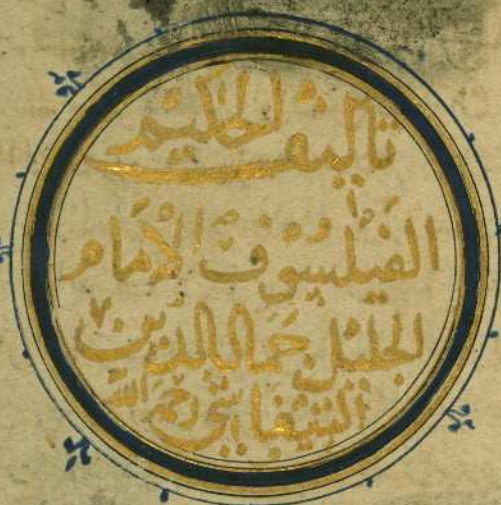 تاليف الحكيم
الفيلسوف الامام
الجليل جمال الدين
التيفاشي رحمه الله